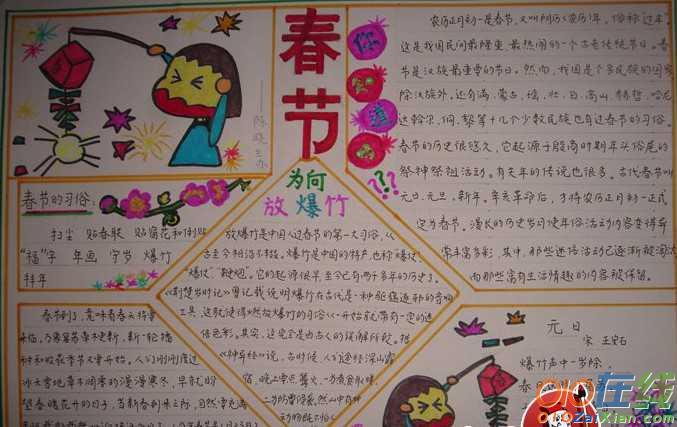 春节
你
知
道
???
——陈晓兰办
农历正月初一是春节，又叫阴历(农历)年，俗称"过年"。
这是我国民间最隆重、最热闹的一个古老传统节日。春
节是汉族最重要的节日。然而，我国是个多民族的国家
除汉族外，还有满、蒙古、瑶、壮、白、高山、赫哲、哈尼
达斡尔、侗、黎等十几个少数民族也有过春节的习俗。
春节的历史很悠久，它起源于殷商时期年头岁尾的
祭神祭祖活动。有关年的传说也很多。古代春节叫
元日、元旦，新年。辛亥革命后，才将农历正月初一正式
定为春节。漫长的历史岁月使年俗活动内容变得异
常丰富多彩，其中，那些迷信活动已逐渐被淘汰
而那些富有生活情趣的内容被保留。
春节的习俗：
扫尘 贴春联 贴窗花和倒贴
"福"字 年画 守岁 爆竹
拜年
为何
放爆竹
放爆竹是中国人过春节的第一大习俗，从
古至今相沿不移。爆竹是中国的特产，也称"爆仗"、
"炮仗"、"鞭炮"。它的起源很早，至今已有两千多年的历史了。
《荆楚岁时记》曾记载说明爆竹在古代是一种驱瘟逐邪的音响
工具，这就使得燃放爆竹的习俗从一开始就带有一定的迷
信色彩。其实，这完全是由古人的误解所致。据
《神异经》说，古时候，人们途经深山露
宿，晚上要点篝火，一为煮食取暖，
二为防止野兽侵袭。然山中有种
动物既不怕人
春节到了，意味着春天将要
来临，万象复苏草木更新，新一轮播
种和收获季节又要开始。人们刚刚度过
冰天雪地草木凋零的漫漫寒冬，早就盼
望春暖花开的日子，当新春到来之际，自然要充满
元日
宋 王安石
爆竹声中一岁除，
春
QQ在线
QQZaiXian.Com